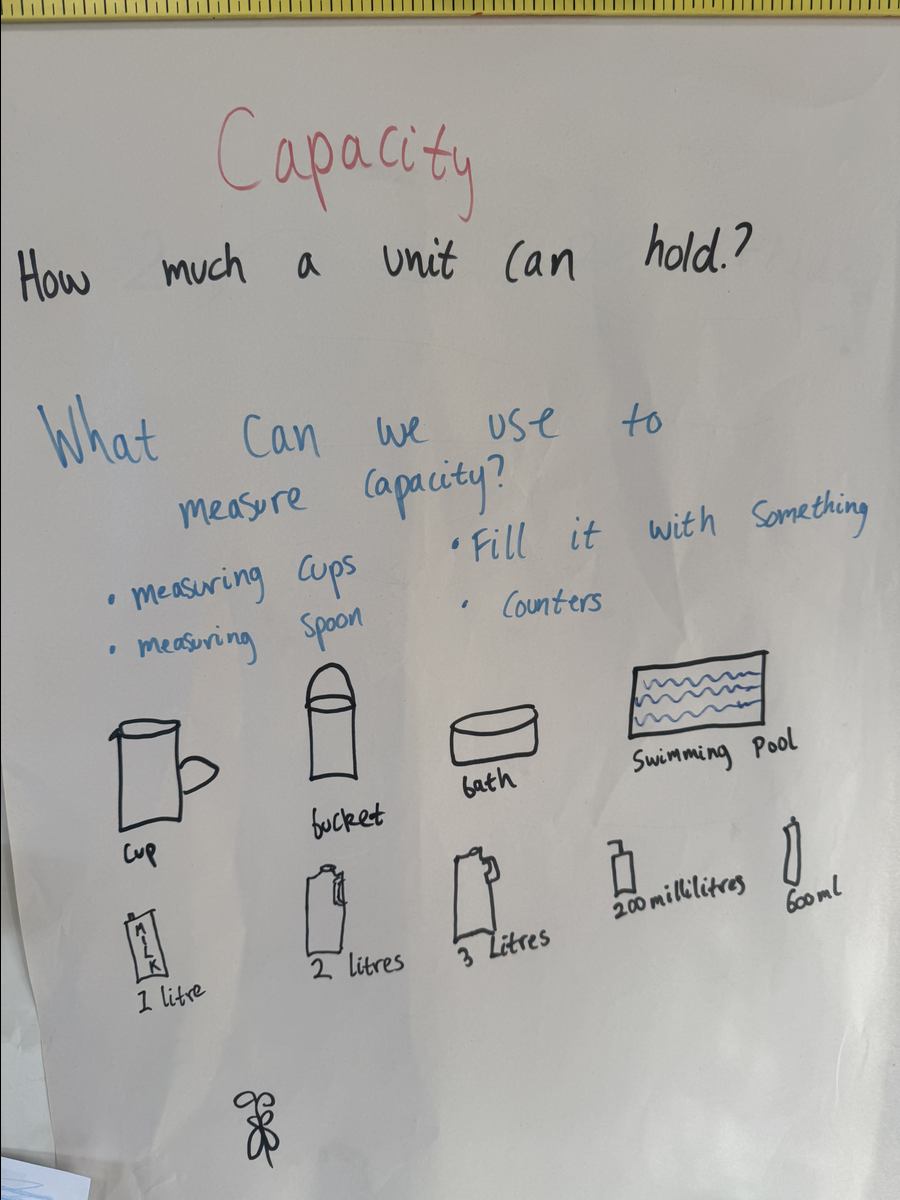 Capacity
How much a unit can hold.?
What can we use to
measure capacity?
• measuring cups
• measuring spoon
• Fill it with something
• counters
cup
bucket
bath
Swimming Pool
MILK
1 litre
2 litres
3 Litres
200 millilitres
600ml